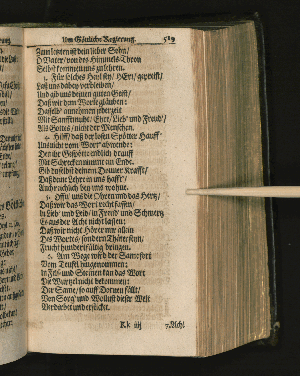 Um Göttliche Regierung. 519
Zum letzten ist dein lieber Sohn/
O Vater/ von des Himmels-Thron
Selbst kommen uns zu lehren.
3. Für solches Heil sey/ HErr/ gepreißt/
Laß uns dabey verbleiben/
Und gib uns deinen guten Geist/
Daß wir dem Worte gläuben:
Dasselb' annehmen jederzeit
Mit Sanfftmuth/ Ehre/ Lieb' und Freud/
Als Gottes/ nicht der Menschen.
4. Hilff/ daß der losen Spötter Hauff'
Uns nicht vom Wort' abwende:
Denn ihr Gespötte endlich drauff
Mit Schrecken nimmt ein Ende.
Gib du selbst deinem Donner Krafft/
Daß deine Lehre in uns hafft'/
Auch reichlich bey uns wohne.
5. Oeffn' uns die Ohren und das Hertz/
Daß wir das Wort recht fassen/
In Lieb' und Leid/ in Freud' und Schmertz
Es aus der Acht nicht lassen:
Daß wir nicht Hörer nur allein
Des Wortes/ sondern Thäter seyn/
Frucht hundertfältig bringen.
6. Am Wege wird der Same fort
Vom Teufel hingenommen:
In Fels und Steinen kan das Wort
Die Wurtzel nicht bekommen:
Der Same/ so auff Dornen fällt/
Von Sorg' und Wollust dieser Welt
Verdirbet und ersticket.
Kk iij
7. Ach!